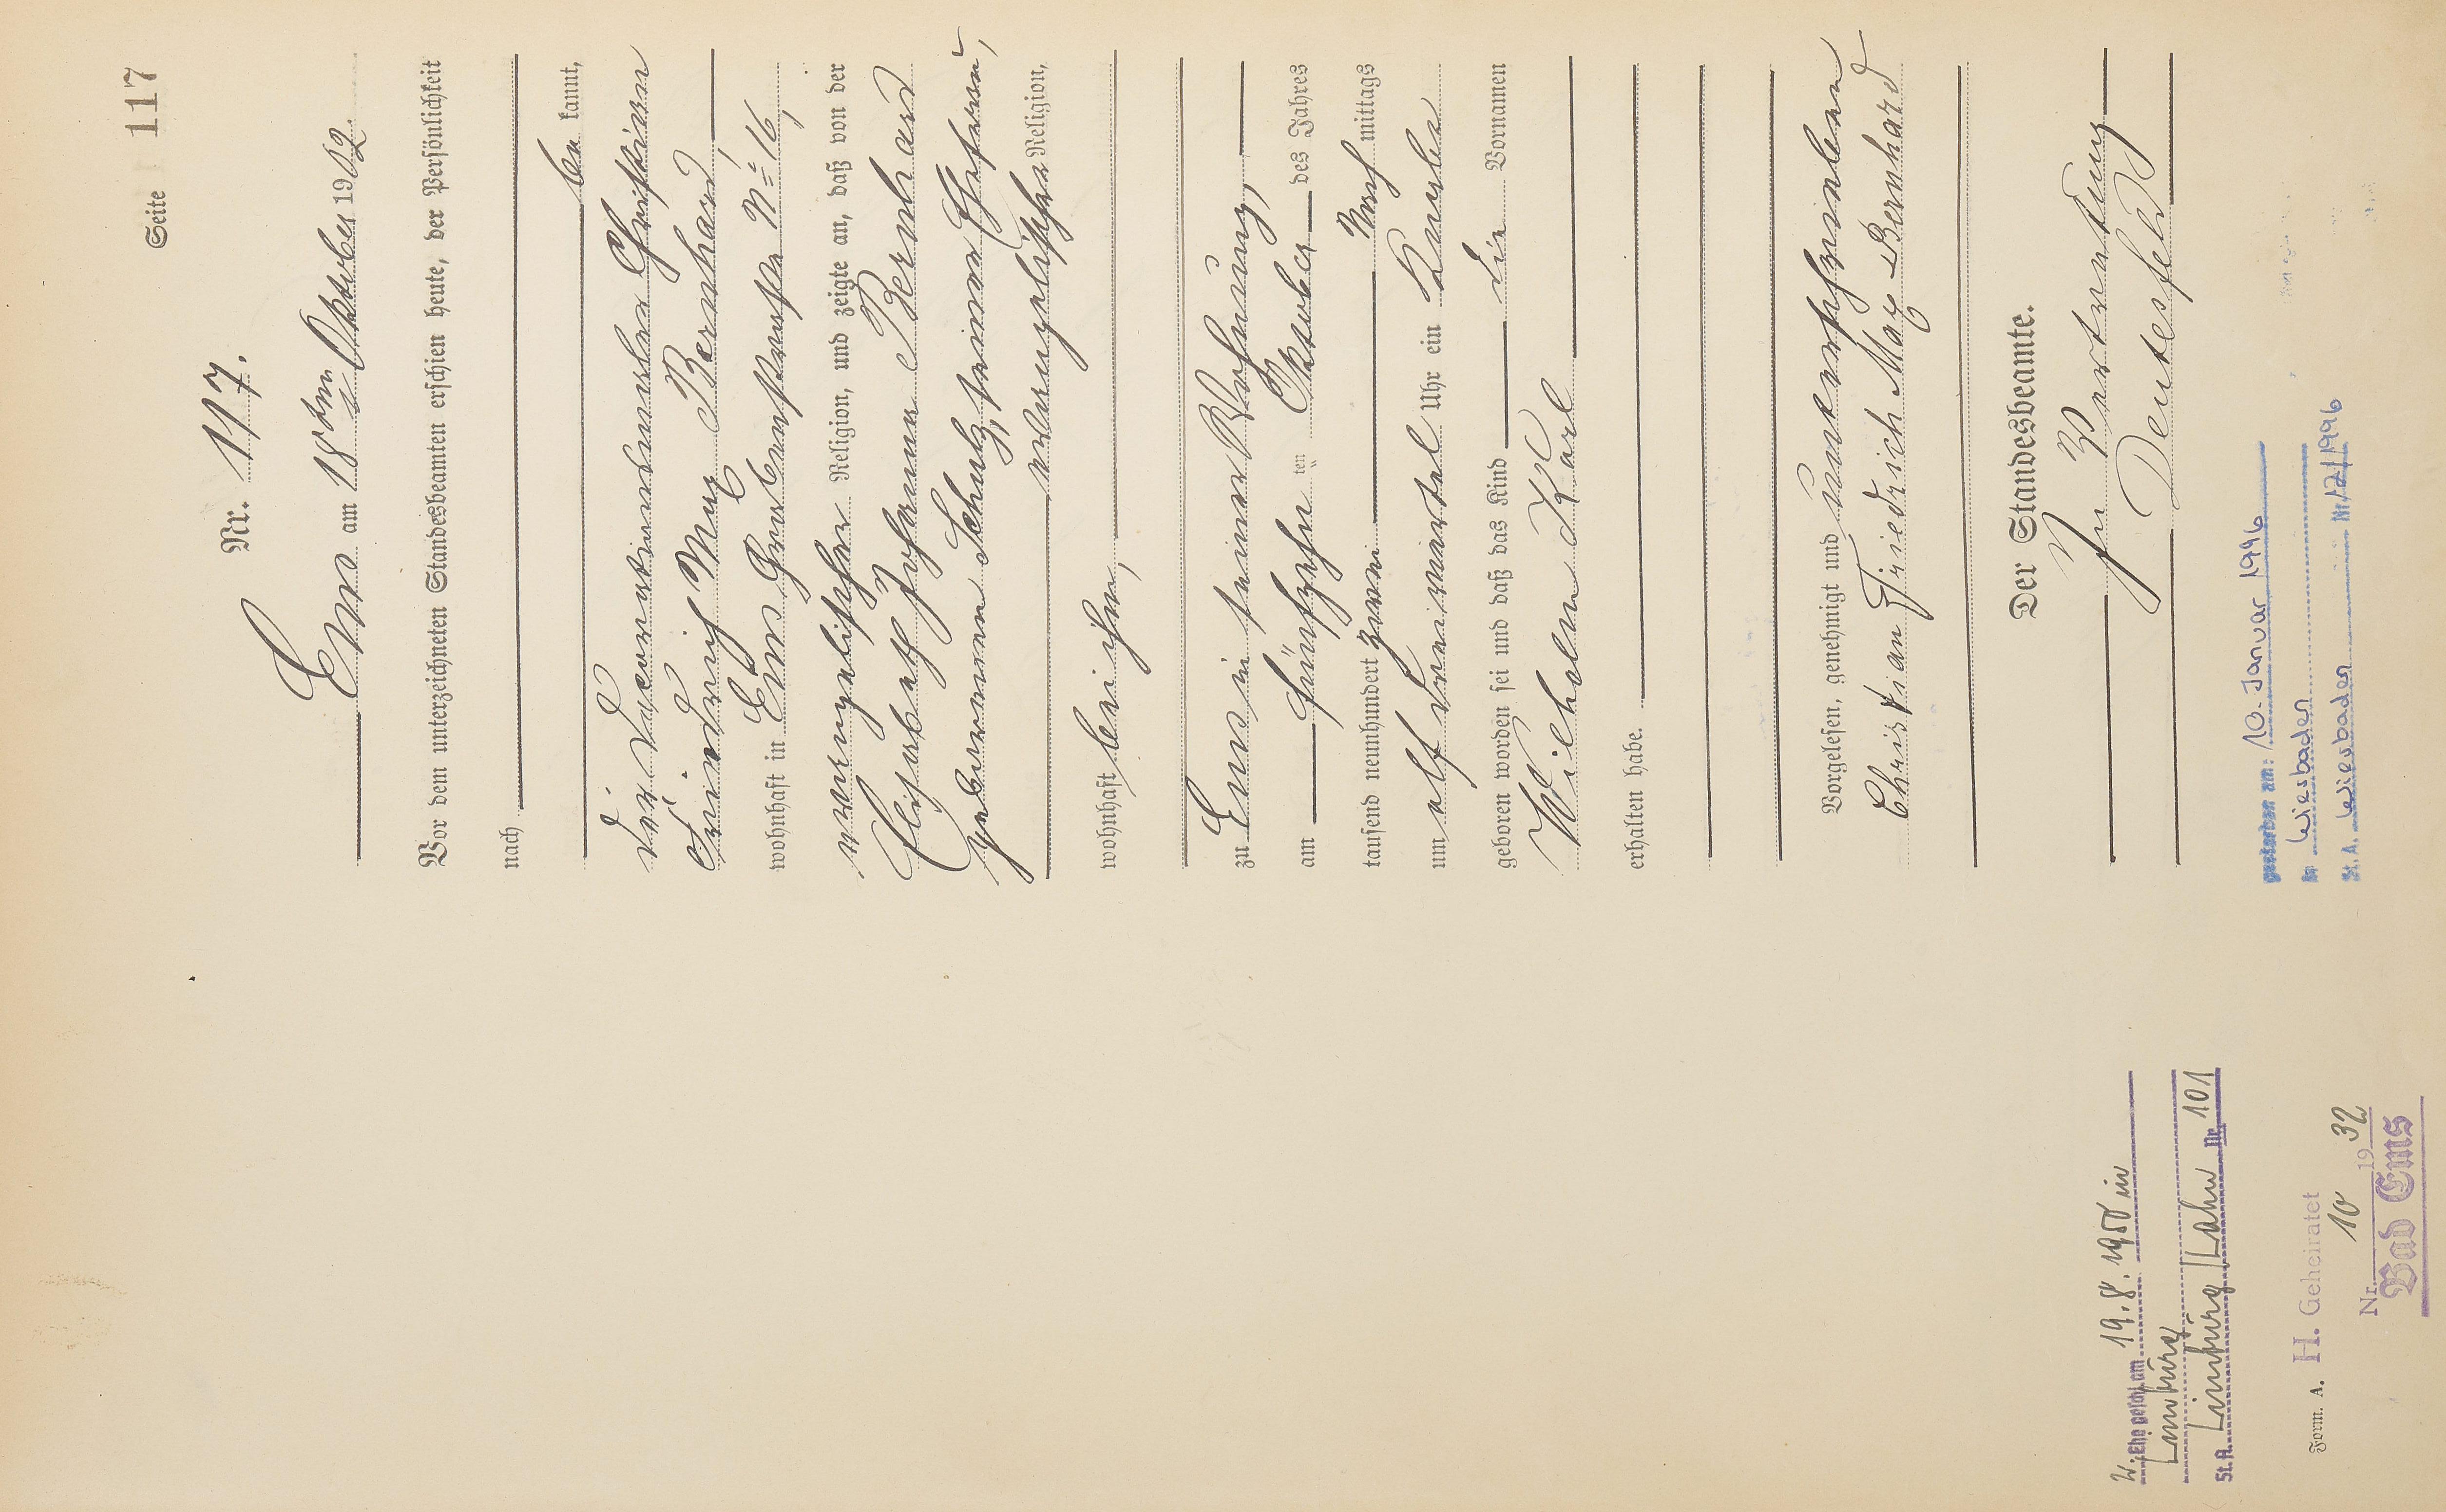 Seite 117
Nr. 117.
Ems am 18ten Oktober 1902.
Vor dem unterzeichneten Standesbeamten erschien heute, der Persönlichkeit
nach
be kannt,
der Decorationsmaler Christian
Friedrich Max Bernhard
wohnhaft in Ems Grabenstraße No 16,
evangelischer Religion, und zeigte an, daß von der
Elisabeth Johanna Bernhard
geborenen Schulz, seiner Ehefrau,
evangelischer Religion,
wohnhaft bei ihm,
zu Ems in seiner Wohnung,
am fünfzehn ten Oktober des Jahres
tausend neunhundert zwei Nach mittags
um elf dreiviertel Uhr ein Knabe
geboren worden sei und daß das Kind die Vornamen
Wilhelm Karl
erhalten habe.
Vorgelesen, genehmigt und unterschrieben
Christian Friedrich Max Bernhard
Der Standesbeamte.
In Vertretung
Deutesfeld
gestorben am: 10. Januar 1996
in Wiesbaden
St. A. Wiesbaden Nr. 121/1996
2. Ehe geschl. am 19.8.1950 in
Limburg
St. A. Limburg/Lahn Nr. 101
Form. A. H. Geheiratet
Nr. 10 1932
Bad Ems